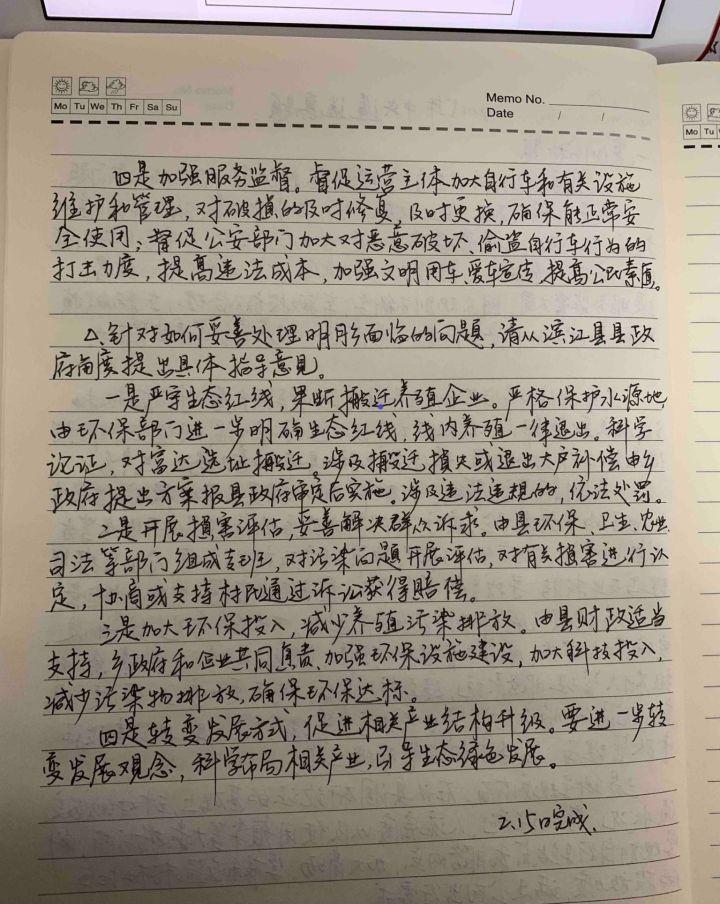 Memo No.
Mo Tu We Th Fr Sa Su
Date / /
Mo Tu
四是加强服务监督。督促运营主体加大自行车和有关设施
维护和管理,对破损的及时修复,及时更换,确保能正常安
全使用;督促公安部门加大对恶意破坏、偷盗自行车行为的
打击力度,提高违法成本,加强文明用车、爱车宣传,提高公民素质。
△针对如何妥善处理明月乡面临的问题,请从滨江县县政
府角度提出具体指导意见。
一是严守生态红线,果断搬迁养殖企业。严格保护水源地,
由环保部门进一步明确生态红线,线内养殖一律退出。科学
论证,对富达选址搬迁。涉及搬迁损失或退出大户补偿由乡
政府提出方案报县政府审定后实施。涉及违法违规的,依法处罚。
二是开展损害评估,妥善解决群众诉求。由县环保、卫生、农业、
司法等部门组成专班,对污染问题开展评估,对有关损害进行认
定,协商或支持村民通过诉讼获得赔偿。
三是加大环保投入,减少养殖污染排放。由县财政适当
支持,乡政府和企业共同负责、加强环保设施建设,加大科技投入,
减少污染物排放,确保环保达标。
四是转变发展方式,促进相关产业结构升级。要进一步转
变发展观念,科学布局相关产业,引导生态绿色发展。
2.15日完成.